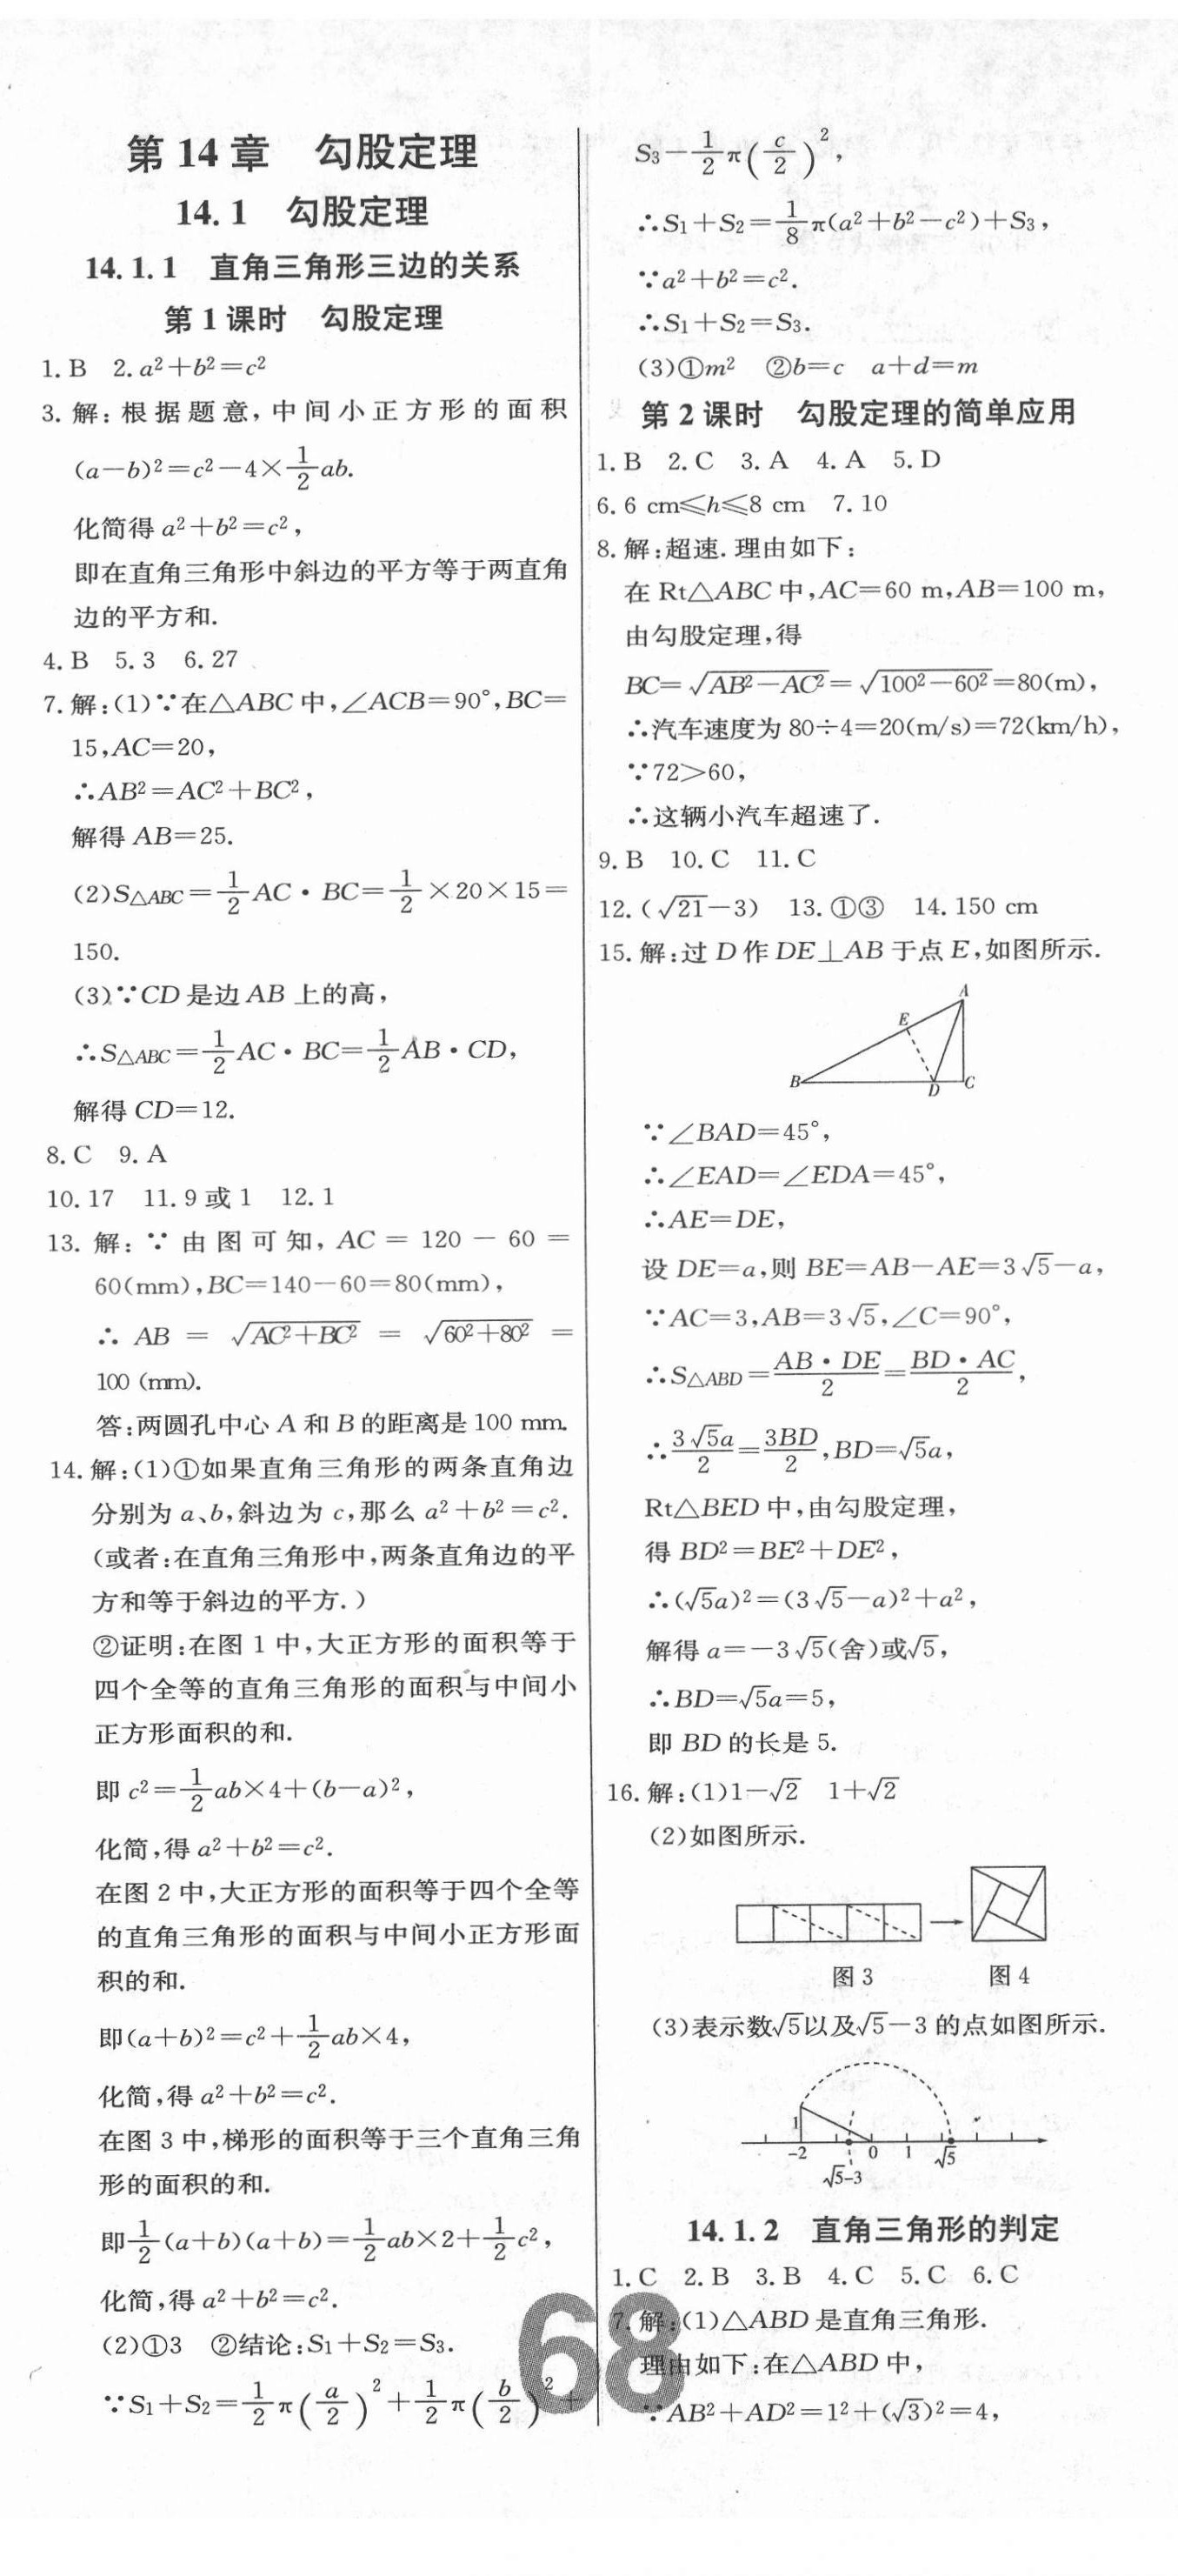 第 14 章　勾股定理
14.1　勾股定理
14.1.1　直角三角形三边的关系
第 1 课时　勾股定理
1. B　2. a²+b²=c²
3. 解:根据题意,中间小正方形的面积
(a-b)²=c²-4×1/2ab.
化简得 a²+b²=c²,
即在直角三角形中斜边的平方等于两直角
边的平方和.
4. B　5. 3　6. 27
7. 解:(1)∵在△ABC 中,∠ACB=90°,BC=
15,AC=20,
∴AB²=AC²+BC²,
解得 AB=25.
(2)S△ABC=1/2AC·BC=1/2×20×15=
150.
(3)∵CD 是边 AB 上的高,
∴S△ABC=1/2AC·BC=1/2AB·CD,
解得 CD=12.
8. C　9. A
10. 17　11. 9 或 1　12. 1
13. 解:∵由图可知,AC=120-60=
60(mm),BC=140-60=80(mm),
∴AB=√(AC²+BC²)=√(60²+80²)=
100 (mm).
答:两圆孔中心 A 和 B 的距离是 100 mm.
14. 解:(1)①如果直角三角形的两条直角边
分别为 a、b,斜边为 c,那么 a²+b²=c².
(或者:在直角三角形中,两条直角边的平
方和等于斜边的平方.)
②证明:在图 1 中,大正方形的面积等于
四个全等的直角三角形的面积与中间小
正方形面积的和.
即 c²=1/2ab×4+(b-a)²,
化简,得 a²+b²=c².
在图 2 中,大正方形的面积等于四个全等
的直角三角形的面积与中间小正方形面
积的和.
即(a+b)²=c²+1/2ab×4,
化简,得 a²+b²=c².
在图 3 中,梯形的面积等于三个直角三角
形的面积的和.
即1/2(a+b)(a+b)=1/2ab×2+1/2c²,
化简,得 a²+b²=c².
(2)①3　②结论:S₁+S₂=S₃.
∵S₁+S₂=1/2π(a/2)²+1/2π(b/2)²+
S₃-1/2π(c/2)²,
∴S₁+S₂=1/8π(a²+b²-c²)+S₃,
∵a²+b²=c².
∴S₁+S₂=S₃.
(3)①m²　②b=c　a+d=m
第 2 课时　勾股定理的简单应用
1. B　2. C　3. A　4. A　5. D
6. 6 cm≤h≤8 cm　7. 10
8. 解:超速.理由如下:
在 Rt△ABC 中,AC=60 m,AB=100 m,
由勾股定理,得
BC=√(AB²-AC²)=√(100²-60²)=80(m),
∴汽车速度为 80÷4=20(m/s)=72(km/h),
∵72>60,
∴这辆小汽车超速了.
9. B　10. C　11. C
12. (√21-3)　13. ①③　14. 150 cm
15. 解:过 D 作 DE⊥AB 于点 E,如图所示.
A
E
B
D
C
∵∠BAD=45°,
∴∠EAD=∠EDA=45°,
∴AE=DE,
设 DE=a,则 BE=AB-AE=3√5-a,
∵AC=3,AB=3√5,∠C=90°,
∴S△ABD=AB·DE/2=BD·AC/2,
∴3√5a/2=3BD/2,BD=√5a,
Rt△BED 中,由勾股定理,
得 BD²=BE²+DE²,
∴(√5a)²=(3√5-a)²+a²,
解得 a=-3√5(舍)或√5,
∴BD=√5a=5,
即 BD 的长是 5.
16. 解:(1)1-√2　1+√2
(2)如图所示.
图 3　图 4
(3)表示数√5以及√5-3 的点如图所示.
1
-2　0　1　√5
√5-3
14.1.2　直角三角形的判定
1. C　2. B　3. B　4. C　5. C　6. C
7. 解:(1)△ABD 是直角三角形.
理由如下:在△ABD 中,
∵AB²+AD²=1²+(√3)²=4,
68